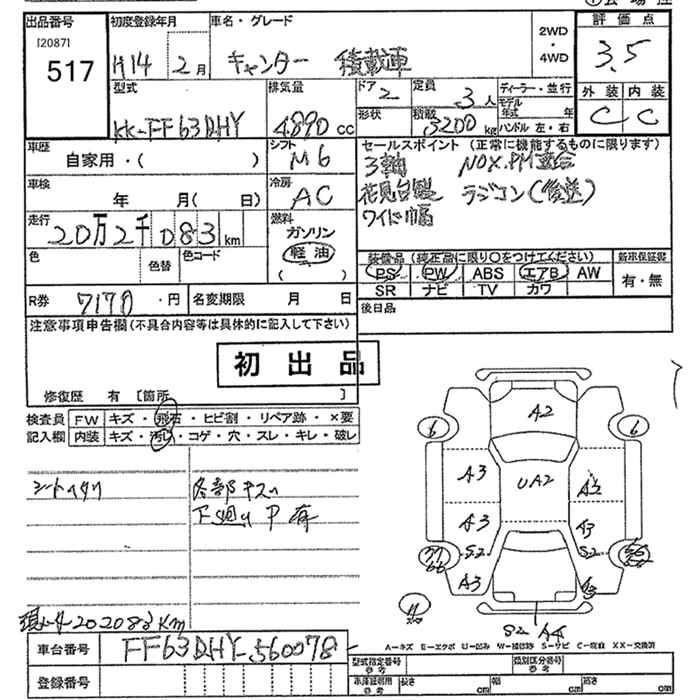 出品番号 初度登録年月 車名・グレード 2WD・4WD 評価点
[2087]
517 H14 2月 キャンター 積載車 3.5
型式 排気量 ドア 2 定員 3人 ディーラー・並行 外装 内装
モデル年式 年
KK-FF63DHY 4890cc 形状 積載 3200kg ハンドル 左・右 C C
車歴 シフト セールスポイント (正常に機能するものに限ります)
自家用・( ) M6 3軸 NOX.PM適合
車検 冷房 花見台製 ラジコン(後送)
年 月( 日) AC ワイド幅
走行 燃料
20万2千083km ガソリン
色 色替 色コード 軽油 装備品(純正品に限り○をつけてください) 新車保証書
( ) PS PW ABS エアB AW 有・無
SR ナビ TV カワ
R券 7170・円 名変期限 月 日 後日品
注意事項申告欄(不具合内容等は具体的に記入して下さい)
初出品
修復歴 有 [箇所 ]
検査員 FW キズ・飛石・ヒビ割・リペア跡・×要
記入欄 内装 キズ・汚れ・コゲ・穴・スレ・キレ・破レ
6 A2 6
A3 UA2 A3
A3 A3
S2 S2
A3 A3
シートヘタリ 各部キズ
下廻り P 有
S2 A4
現メーター 202083Km
A=キズ E=エクボ U=凹み W=補修跡 S=サビ C=腐食 XX=交換済
車台番号 FF63DHY-560078 型式指定番号 参考 類別区分番号 参考
登録番号 車庫証明用 参考 長さ cm 幅 cm 高さ cm